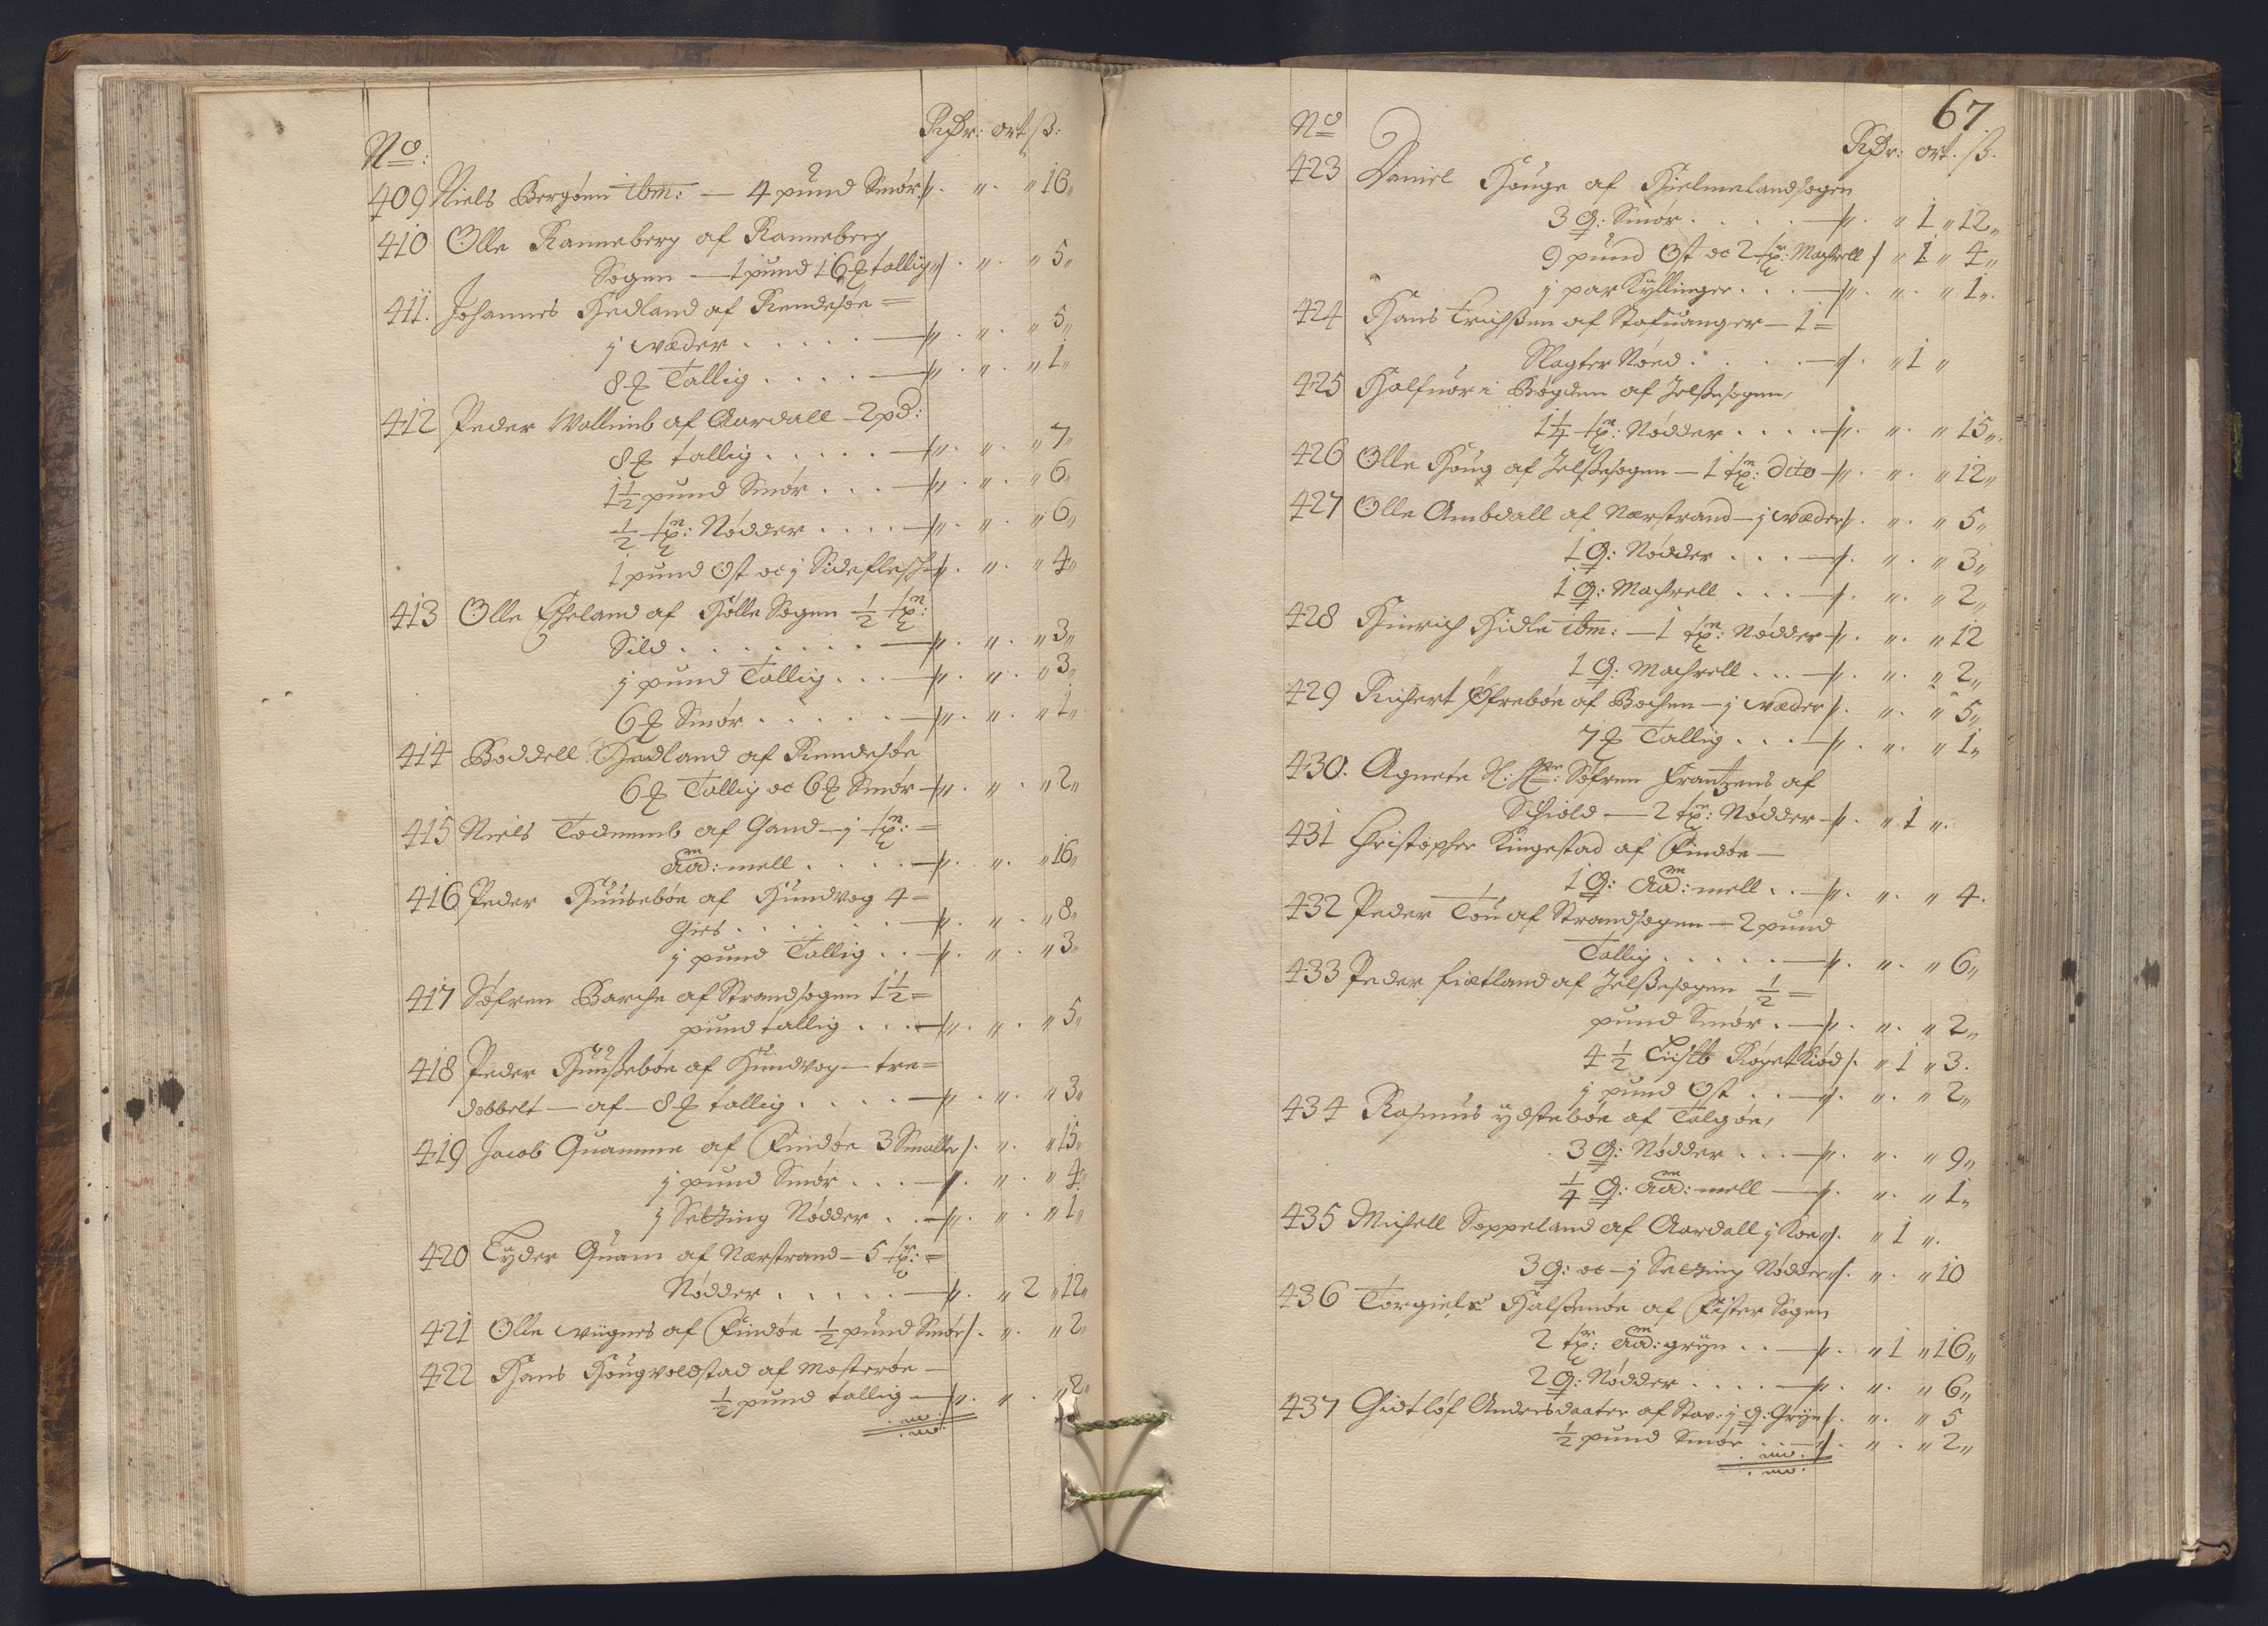 No: Rdr: ort ß:
409 Niels Bergøen ibm: — 4 pund Smør „ . „ . „ 16„
410 Olle Ranneberg af Ranneberg
Sogen — 1 pund 16 ℔ tallig „ . „ . „ 5„
411. Johannes Hedland af Rendesøe =
j wæder . . . . . — „ . „ . „ 5„
8 ℔ Tallig . . . . — „ . „ . „ 1„
412 Peder Wallimb af Aardall — 2 pd:
8 ℔ tallig . . . . . — „ . „ . „ 7„
1½ pund Smør . . . — „ . „ . „ 6„
½ tn: Nødder . . . . — „ . „ . „ 6„
1 pund Ost oc j Sideflesch „ . „ . „ 4„
413 Olle Eicheland af Hølle Sogen ½ tn:
Sild . . . . . . . — „ . „ . „ 3„
j pund Tallig . . . — „ . „ . „ 3„
6 ℔ Smør . . . . . — „ . „ . „ 1„
414 Boddell Hedland af Rendesøe
6 ℔ Tallig oc 6 ℔ Smør — „ . „ . „ 2„
415 Niels Todnemb af Gand — j tn: =
Aad: mell . . . . — „ . „ . „ 16„
416 Peder Huusebøe af Hundvog 4 =
Gies . . . . . . . — „ . „ . „ 8„
j pund Tallig . . — „ . „ . „ 3„
417 Søfren Barche af Strandsogen 1½ =
pund tallig . . . — „ . „ . „ 5„
418 Peder Huusebøe af Hundvog — tre=
dobbelt — af — 8 ℔ tallig . . . . — „ . „ . „ 3„
419 Jacob Quamme af Findøe 3 Smaller „ . „ . „ 15„
j pund Smør . . . — „ . „ . „ 4„
j Setting Nødder . . — „ . „ . „ 1„
420 Tyder Quam af Nærstrand — 5 tr: =
Nødder . . . . . — „ . „ 2 „ 12„
421 Olle wignes af Findøe ½ pund Smør „ . „ . „ 2„
422 Hans Hougvoldstad af Mosterøe —
½ pund tallig — „ . „ . „ 2„
67
No Rdr: ort. ß.
423 Daniel Houge af Hielmelandsogen
3 q: Smør . . . . — „ . „ 1 „ 12„
9 pund Ost oc 2 tr: Machrell „ 1 „ 4„
j par Kyllinger . . . — „ . „ . „ 1„
424 Hans Erichßen af Stafuanger — 1 =
Slagter Nøed . . . . — „ . „ 1 „
425 Halfuor i Bøgden af Jelßesogen,
1¼ tn: Nødder . . . . — „ . „ . „ 15„
426 Olle Houg af Jelßesogen — 1 tn: dito — „ . „ . „ 12„
427 Olle Ambdall af Nærstrand — j wæder „ . „ . „ 5„
1 q: Nødder . . . — „ . „ . „ 3„
1 q: Machrell . . . — „ . „ . „ 2„
428 Hinrich Hidle ibm: — 1 tn: Nødder — „ . „ . „ 12
1 q: Machrell . . . — „ . „ . „ 2„
429 Richert Øfrebøe af Bochen — j wæder „ . „ . „ 5„
7 ℔ Tallig . . . — „ . „ . „ 1„
430. Agnete Sl: Hr: Søfren Frantzens af
Schiold — 2 tr: Nødder — „ . „ 1 „ .
431 Christopher Kingestad af Findøe —
1 q: Aad: mell . . — „ . „ . „ 4.
432 Peder Tou af Strandsogen — 2 pund
Tallig . . . . . — „ . „ . „ 6„
433 Peder fiætland af Jelßesogen ½ =
pund Smør . — „ . „ . „ 2„
4½ Røget Kiød „ . „ 1 „ 3.
j pund Ost . . — „ . „ . „ 2„
434 Rasmus ydstebøe af Talgøe,
3 q: Nødder . . . — „ . „ . „ 9„
¼ q: Aad: mell — „ . „ . „ 1„
435 Michell Soppeland af Aardall j Koe „ . „ 1 „ .
3 q: oc — j Setting Nødder „ . „ . „ 10
436 Torgiels Halßenøe af Fister Sogen
2 tr: Aad: gryn . . — „ . „ 1 „ 16„
2 q: Nødder . . . . — „ . „ . „ 6„
437 Gidtløf Andersdaater af Stav: j q: Gryn „ . „ . „ 5
½ pund Smør . . — „ . „ . „ 2„